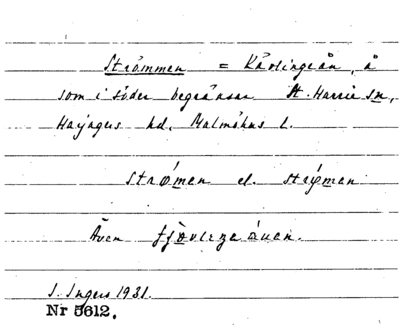 Strömmen = Kävlingeån, å
som i söder begränsar St. Harrie sn,
Harjagers hd, Malmöhus l.
strø̀men el. strø̀men
Även
I. Ingers 1931.
Nr 5612.